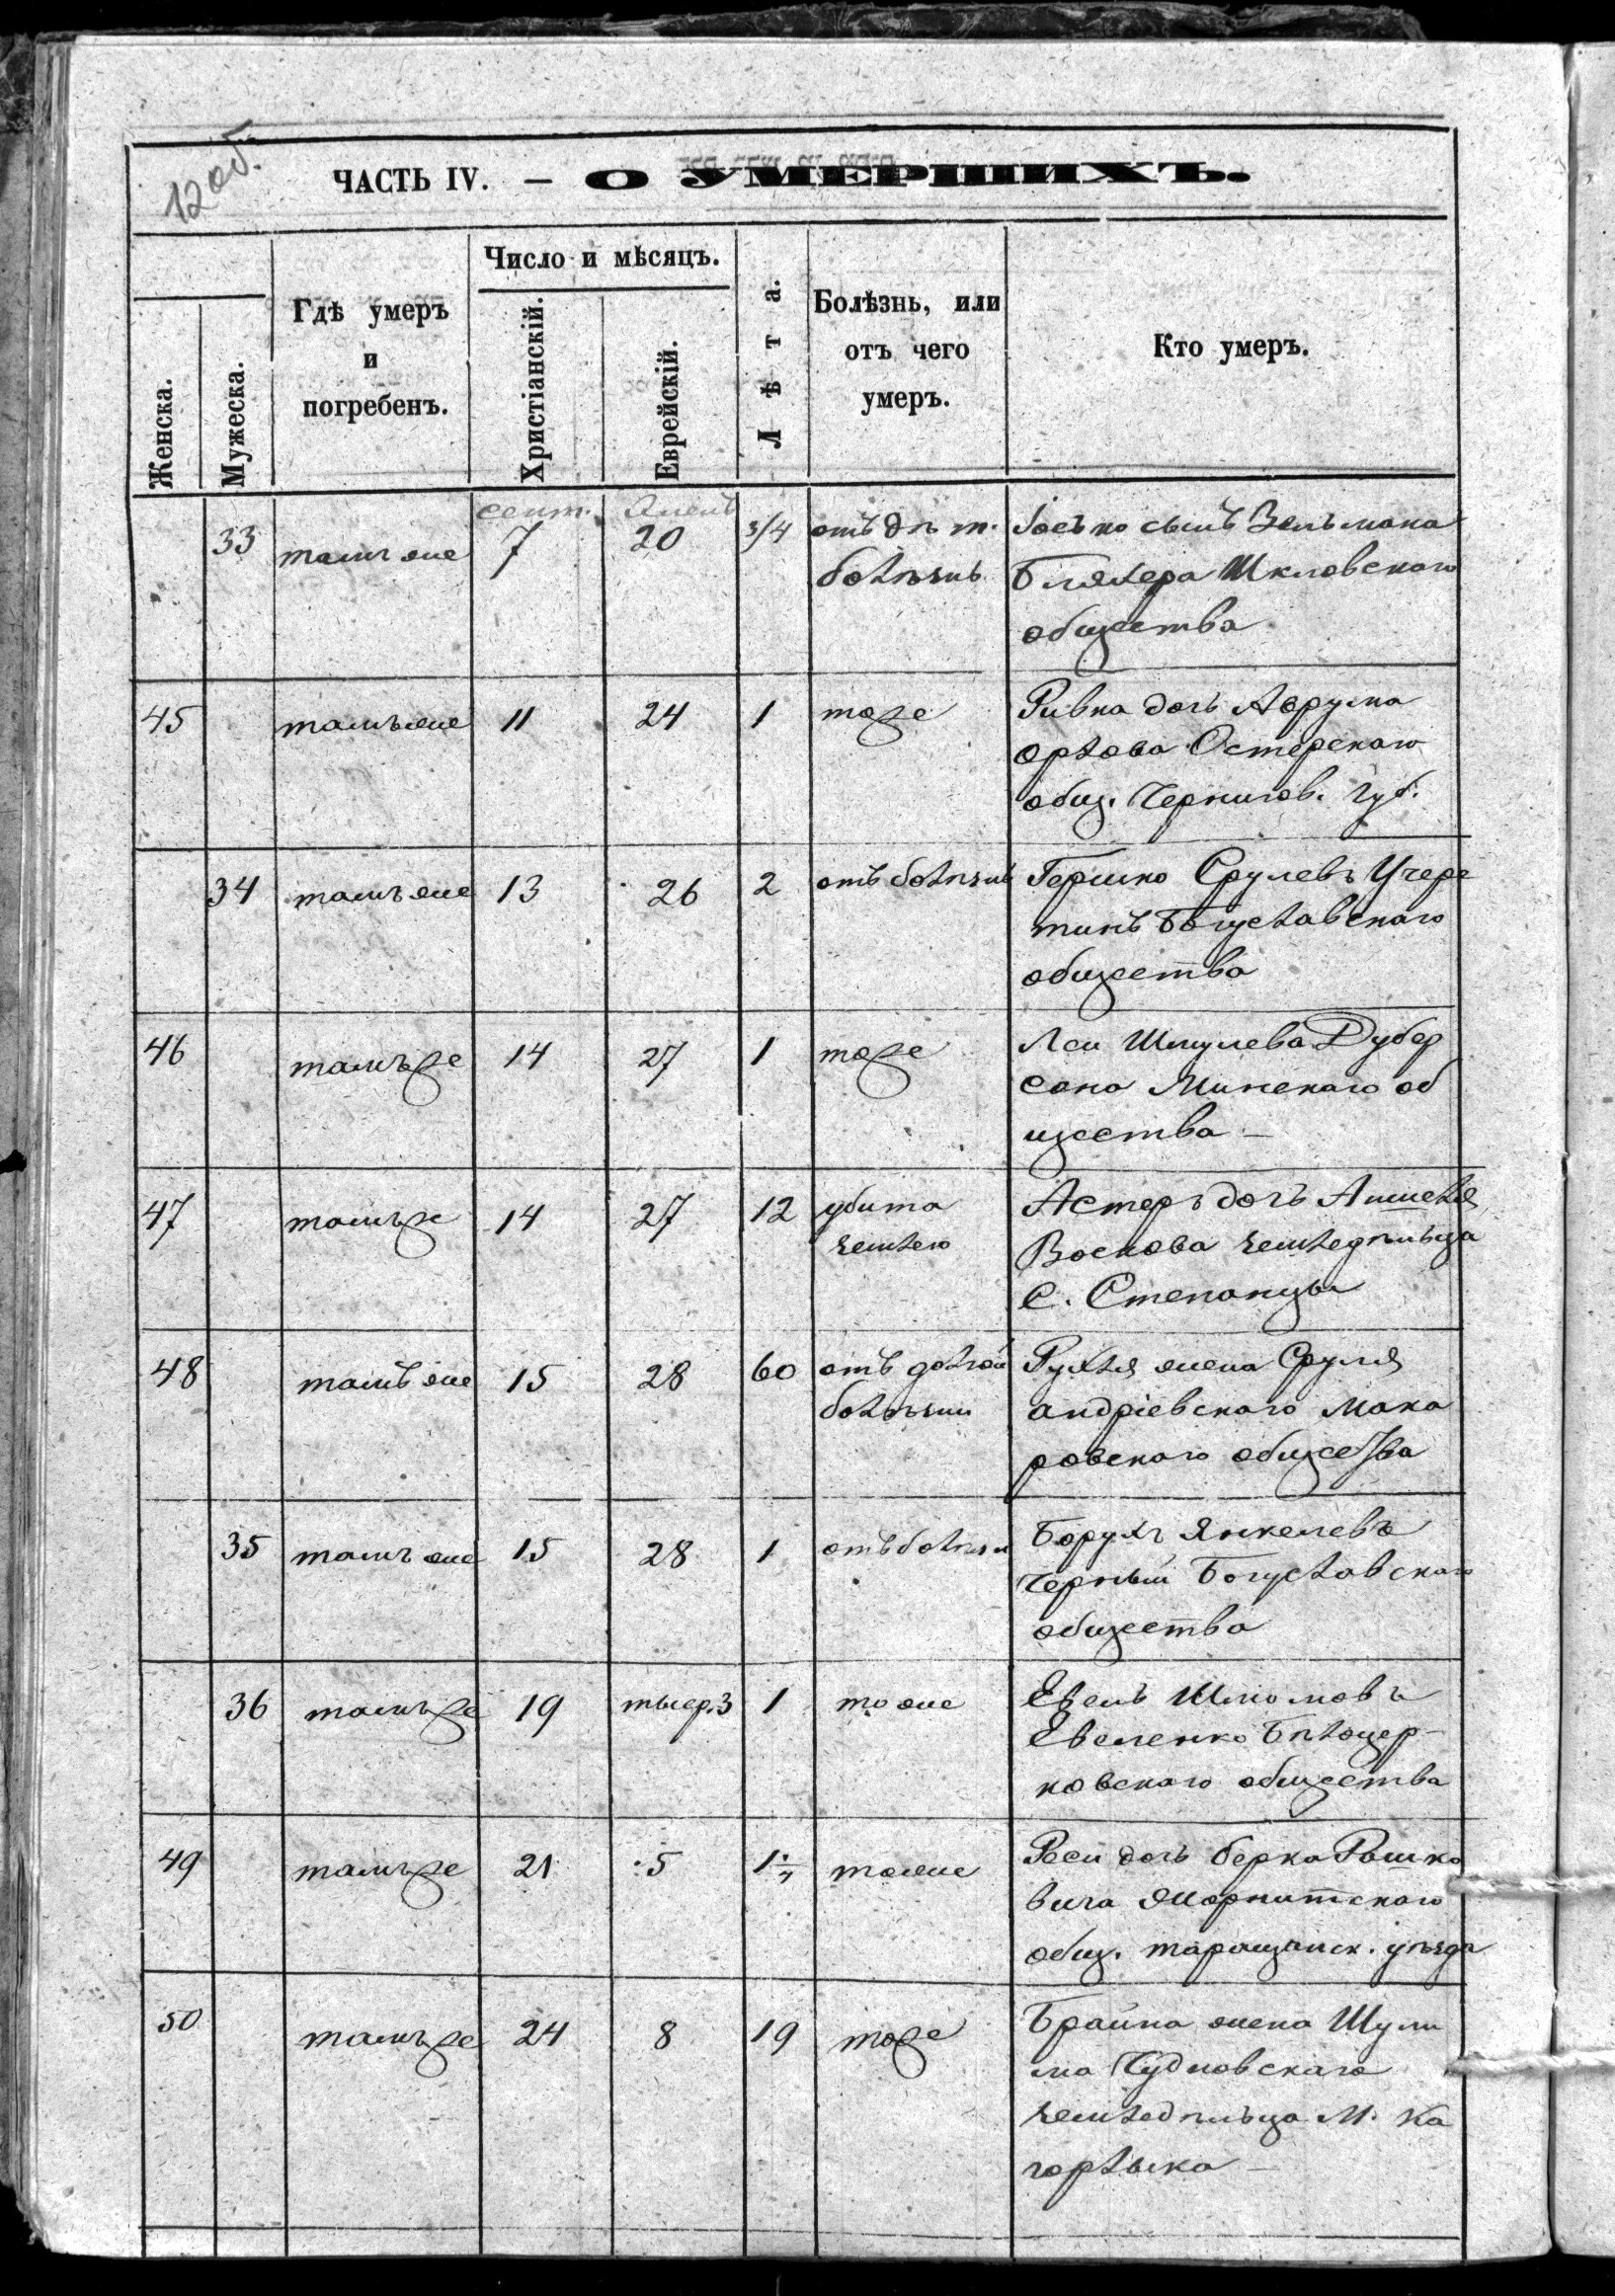 12 об.
ЧАСТЬ IV. — О УМЕРШИХЪ.
Женска.
Мужеска.
Гдѣ умеръ
и
погребенъ.
Число и мѣсяцъ.
Христіанскій.
Еврейскій.
Лѣта.
Болѣзнь, или
отъ чего
умеръ.
Кто умеръ.
33 тамъ же сент. 7 20 3/4 отъ
болѣзнь
Іосько сынъ Зельмана
Бляхера Шкловскаго
общества
45 тамъ же 11 24 1 тоже
Ривка дочь Аврума
Орлова Остерскаго
общ. Чернигов. губ.
34 тамъ же 13 26 2 отъ болѣзнь
Гершко Срулевъ
Богуславскаго
общества
46 тамъ же 14 27 1 тоже
Леи Шмулева Дубер
сона Минскаго об
щества —
47 тамъ же 14 27 12 убита
землею
Астеръ дочь
Воскова земледѣльца
с. Степанцы
48 тамъ же 15 28 60 отъ долгой
болѣзни
Рухля жена Сруля
Андріевскаго Мака
ровскаго общества
35 тамъ же 15 28 1 отъ болѣзн
Борухъ Янкелевъ
Черный Богуславскаго
общества
36 тамъ же 19 3 1 то же
Евель Шломовъ
Евеленко Бѣлоцер-
ковскаго общества
49 тамъ же 21 5 1 тоже
Реси дочь Берка Рашко
вича
общ. таращанск. уѣзда
50 тамъ же 24 8 19 тоже
Брайна жена Шули
ма Чудновскаго
земледѣльца М. Ка
горлыка —